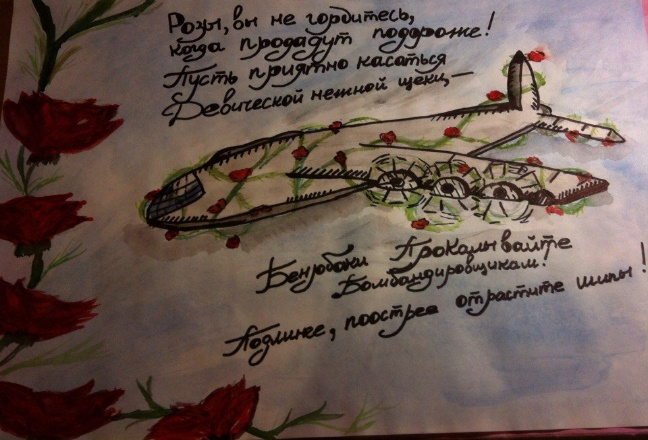 Розы, вы не гордитесь,
когда продадут подороже!
Пусть приятно касаться
Девической нежной щеки, —
Бензобаки Прокалывайте
Бомбандировщикам!
Подлинее, поострее отрастите шипы!